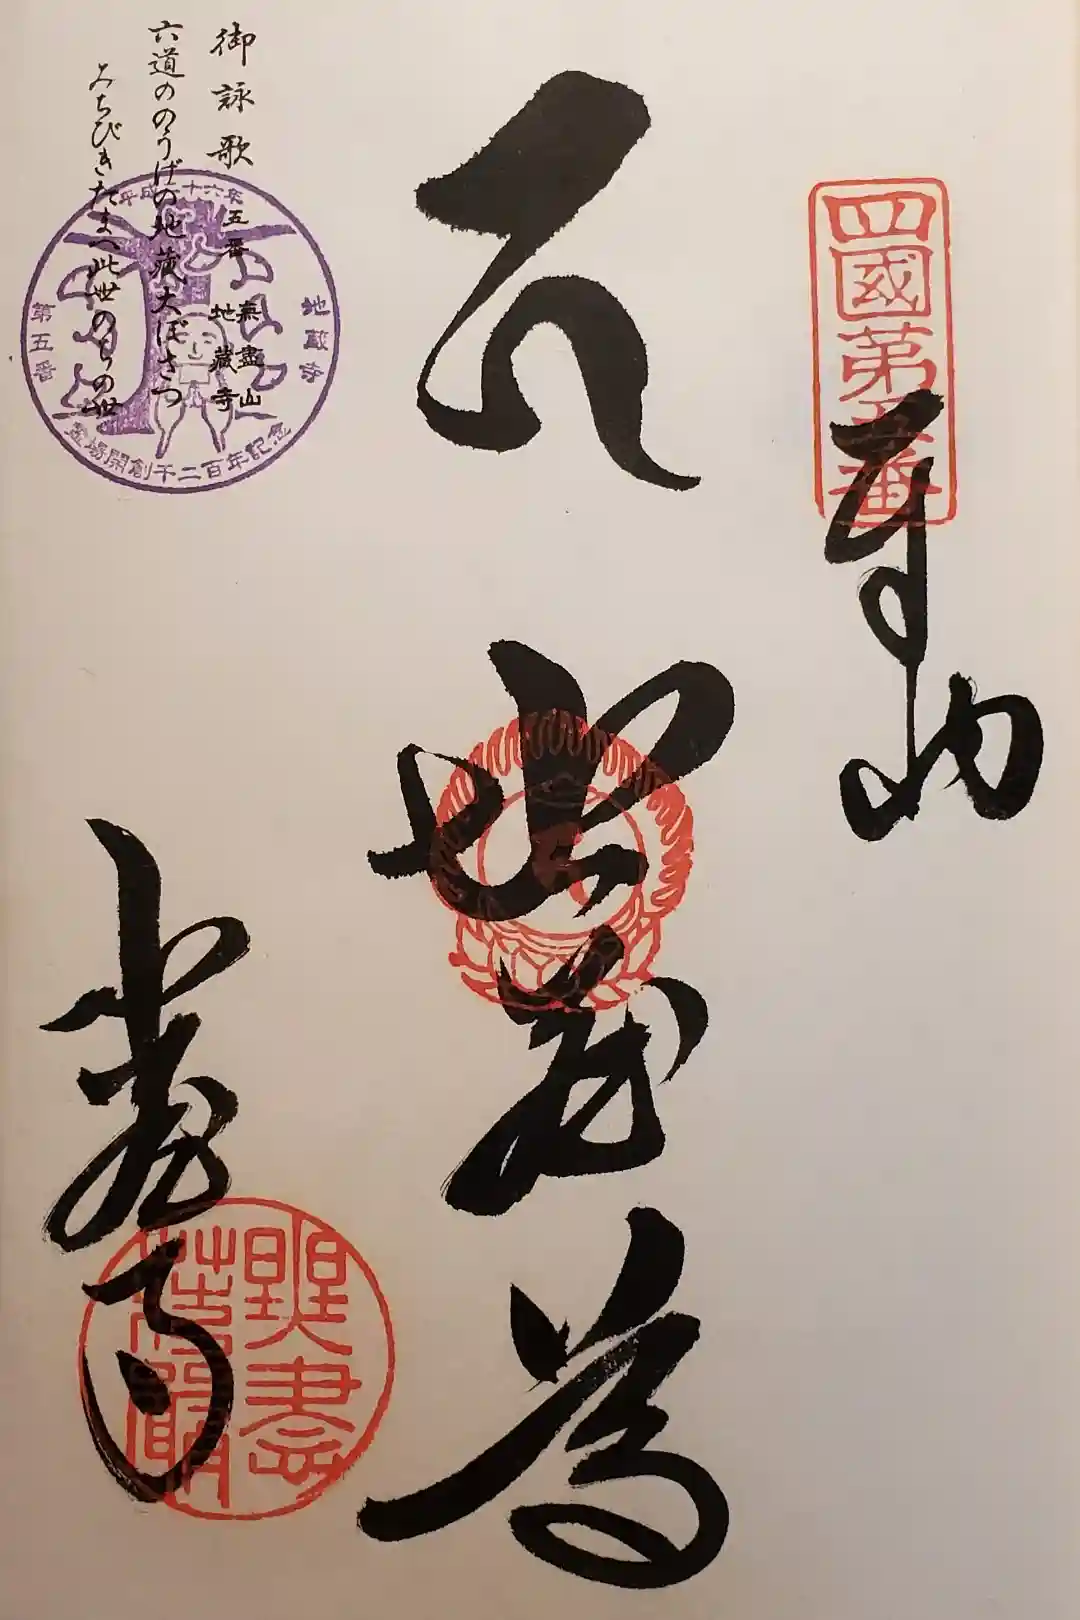 四國第五番
奉納
地蔵尊
地蔵寺
無盡山
荘嚴
御詠歌
五番
無盡山
地蔵寺
六道ののうげの地蔵大ぼさつ
みちびきたまへ此世のちの世
平成二十六年
第五番
地蔵寺
霊場開創千二百年記念